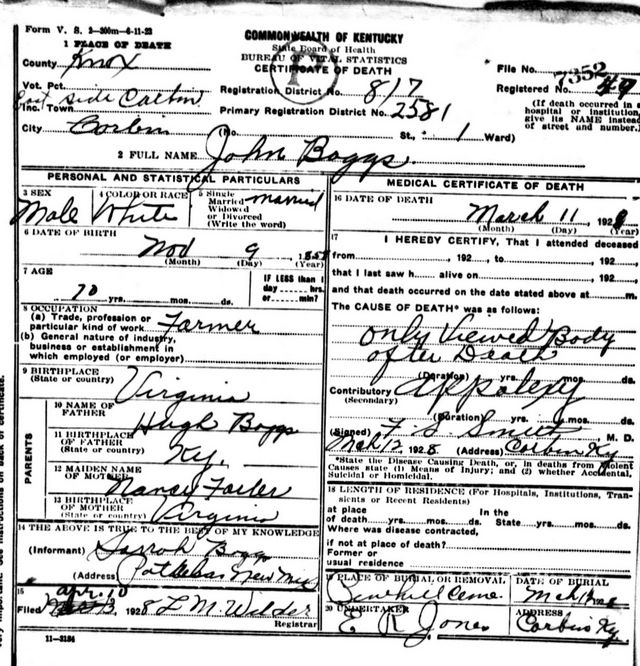 Form V. S. 2-300m-6-11-23
COMMONWEALTH OF KENTUCKY
State Board of Health
BUREAU OF VITAL STATISTICS
CERTIFICATE OF DEATH
1 PLACE OF DEATH
County Knox
File No. 7352
Vot. Pct. East side Corbin
Registration District No. 817
Registered No. 49
Inc. Town
Primary Registration District No. 2581
(If death occurred in a hospital or institution, give its NAME instead of street and number.)
City Corbin (No. St., 1 Ward)
2 FULL NAME John Boggs
PERSONAL AND STATISTICAL PARTICULARS
3 SEX Male
4 COLOR OR RACE White
5 Single Married Widowed or Divorced (Write the word) Married
6 DATE OF BIRTH
Nov 9
(Month) (Day) (Year)
7 AGE
70 yrs. mos. ds.
IF LESS than 1 day hrs. or min?
8 OCCUPATION
(a) Trade, profession or particular kind of work Farmer
(b) General nature of industry, business or establishment in which employed (or employer)
9 BIRTHPLACE
(State or country) Virginia
PARENTS
10 NAME OF FATHER Hugh Boggs
11 BIRTHPLACE OF FATHER
(State or country) Ky.
12 MAIDEN NAME OF MOTHER Nancy
13 BIRTHPLACE OF MOTHER
(State or country) Virginia
14 THE ABOVE IS TRUE TO THE BEST OF MY KNOWLEDGE
(Informant) Sarroh Boggs
(Address)
15
Apr. 10
Filed 1928 L M Wilder
Registrar
11-3184
MEDICAL CERTIFICATE OF DEATH
16 DATE OF DEATH
March 11, 1928
(Month) (Day) (Year)
17 I HEREBY CERTIFY, That I attended deceased
from , 192 , to , 192 ,
that I last saw h alive on , 192 ,
and that death occurred on the date stated above at m.
The CAUSE OF DEATH* was as follows:
only Viewed Body
after Death
(Duration) yrs. mos. ds.
Contributory Appolexy
(Secondary)
(Duration) yrs. mos. ds.
(Signed) M. D.
Mch 12 1928 (Address) Corbin Ky
*State the Disease Causing Death, or, in deaths from Violent Causes state (1) Means of Injury; and (2) whether Accidental, Suicidal or Homicidal.
18 LENGTH OF RESIDENCE (For Hospitals, Institutions, Transients or Recent Residents)
at place of death yrs. mos. ds. In the State yrs. mos. ds.
Where was disease contracted,
if not at place of death?
Former or usual residence
19 PLACE OF BURIAL OR REMOVAL
DATE OF BURIAL
20 UNDERTAKER
E R Jones
ADDRESS
Corbin Ky